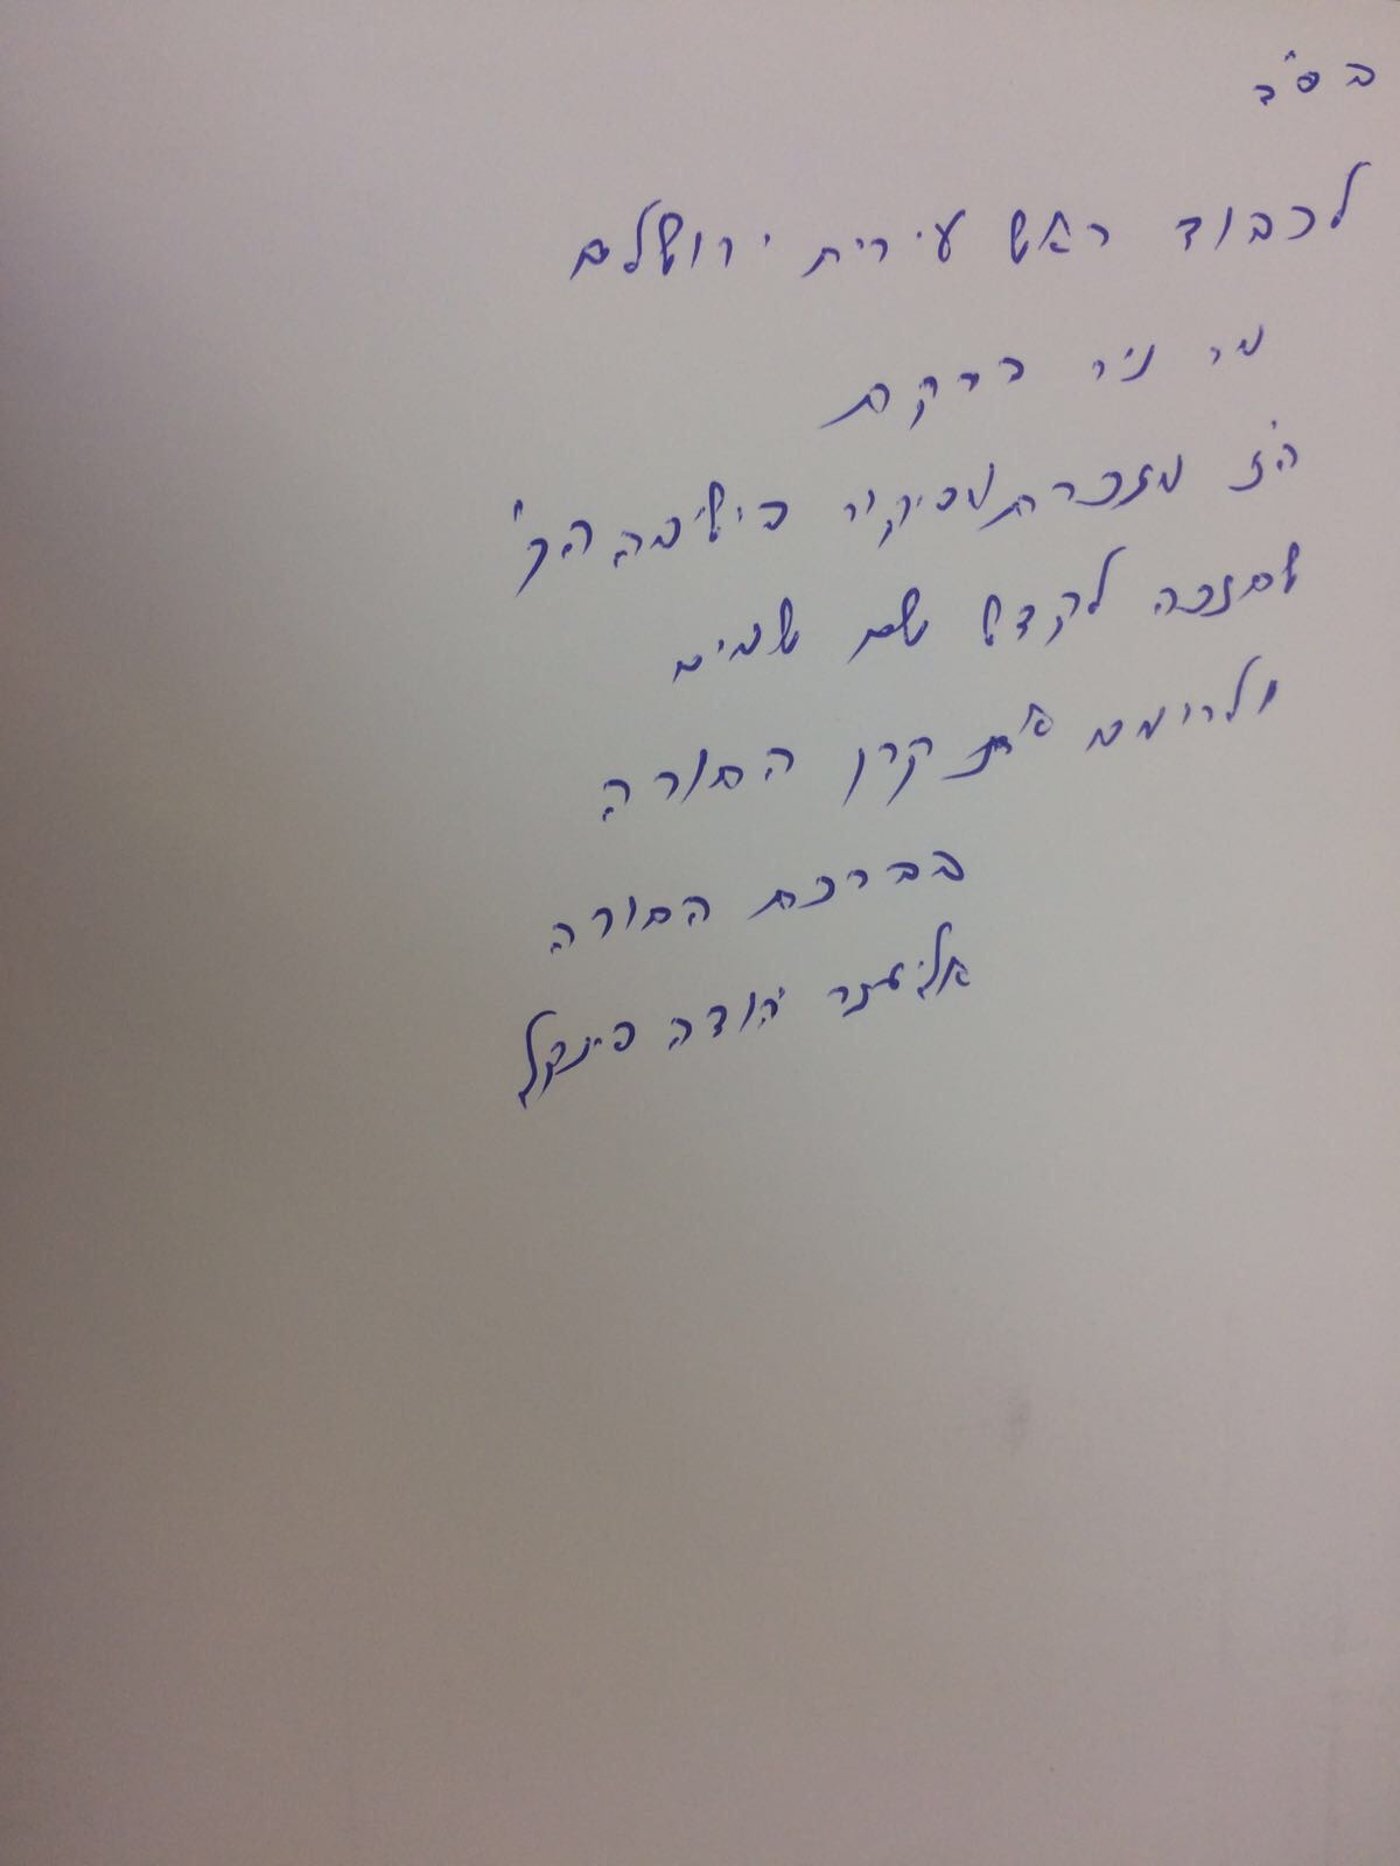 בס"ד
לכבוד ראש עירית ירושלים
מר ניר ברקת
הנ"ל מזכרת מביקור בישיבה הק'
שתזכה לקדש שם שמים
ולרומם את קרן התורה
בברכת התורה
אליעזר יהודה פינקל